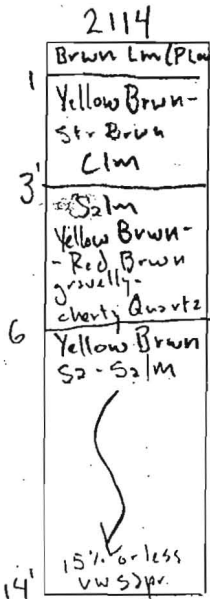 2114
Brwn Lm (Plow
1
Yellow Brwn-
Str Brwn
Clm
3'
Salm
Yellow Brwn-
- Red Brwn
gravelly-
cherty Quartz
6
Yellow Brwn
Sa - Salm
15% or less
vw Sapr.
14'